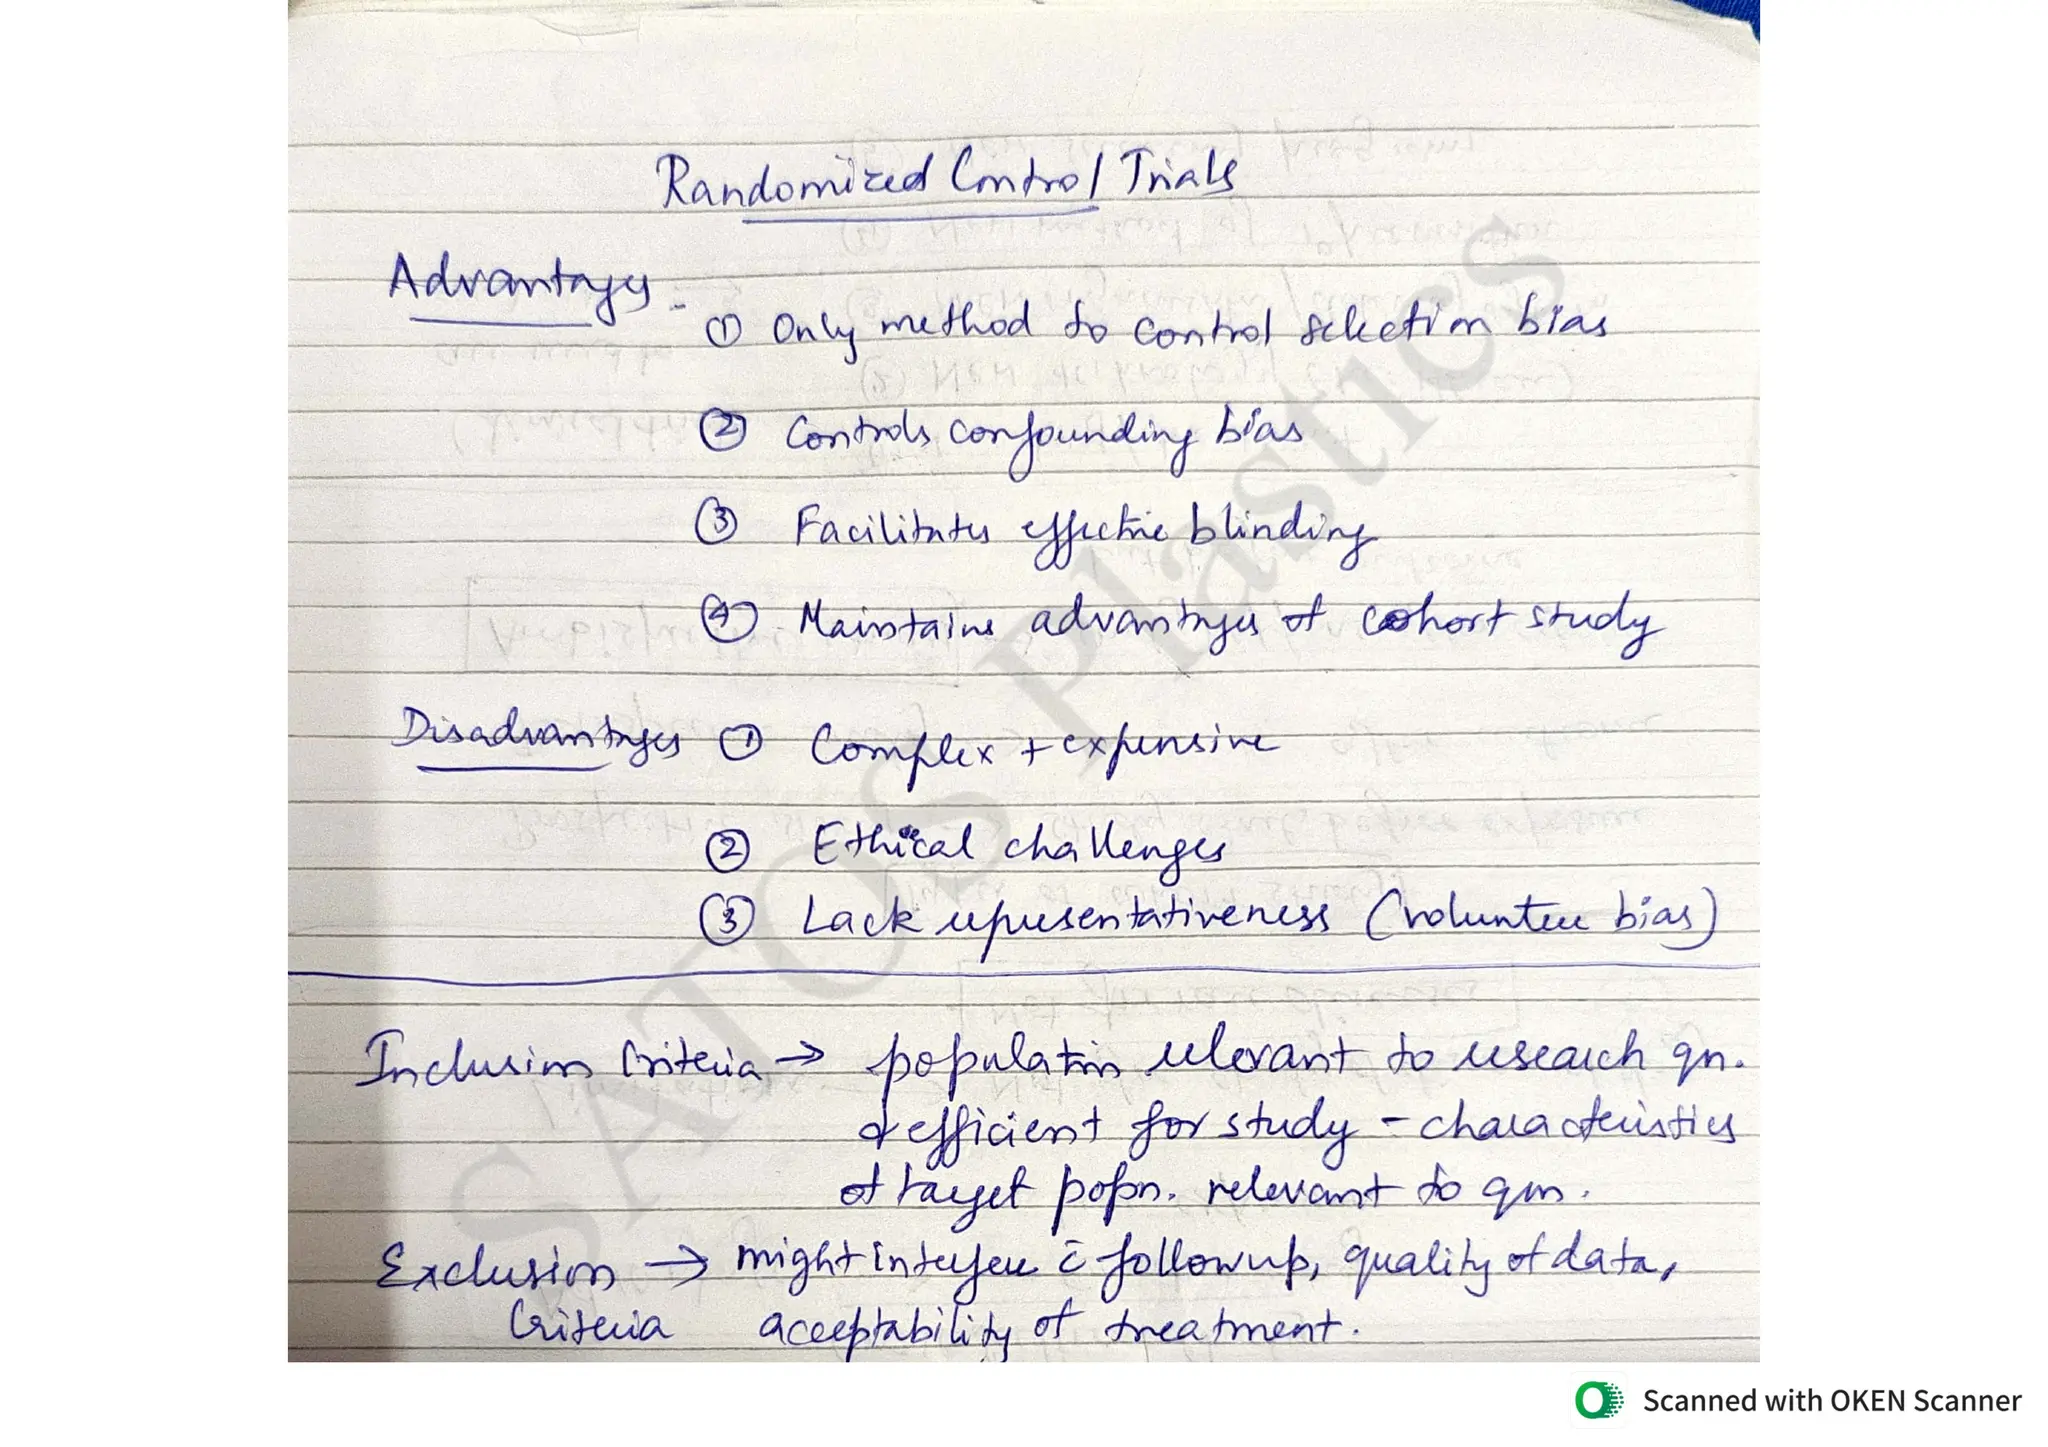 Randomized Control Trials
Advantages -
① Only method to control selection bias
② Controls confounding bias
③ Facilitates effective blinding
④ Maintains advantages of cohort study
Disadvantages ① Complex + expensive
② Ethical challenges
③ Lack representativeness (volunteer bias)
Inclusion Criteria → population relevant to research qn.
& efficient for study - characteristics
of target popn. relevant to qn.
Exclusion → might interfere c̄ followup, quality of data,
Criteria acceptability of treatment.
SATOS Plastics
Scanned with OKEN Scanner